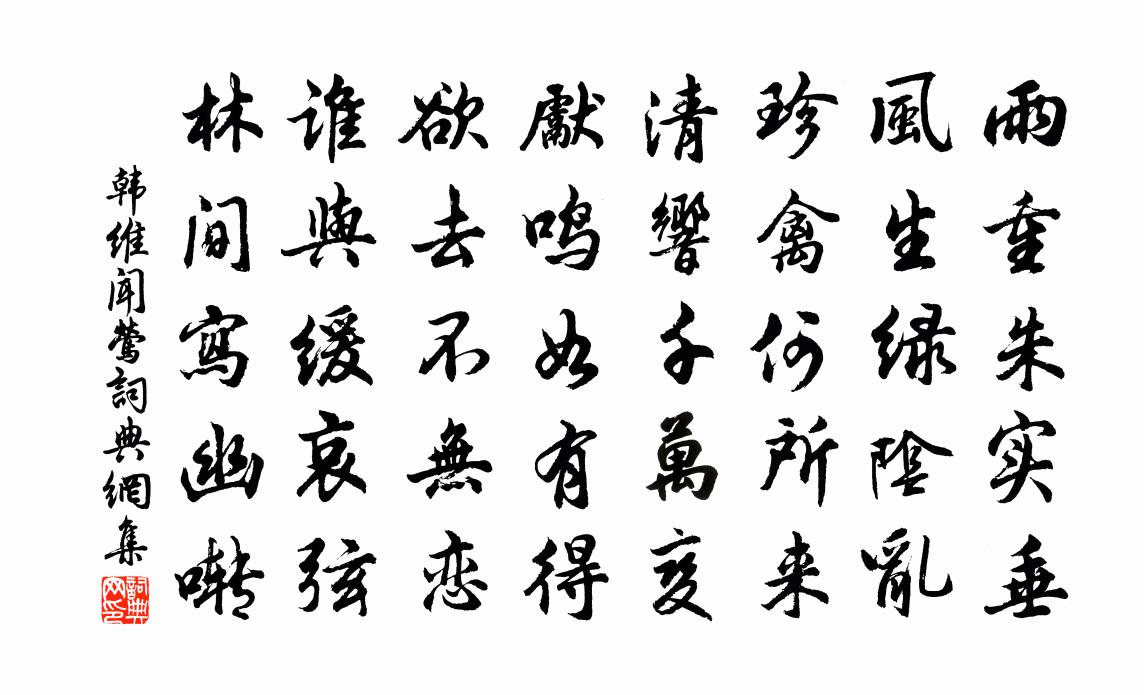 雨重朱实垂
風生绿陰亂
珍禽何所来
清響千萬变
獻鸣如有得
欲去不無恋
谁與缓哀弦
林间寫幽啭
韩维闻莺詞典網集
詞典
网印